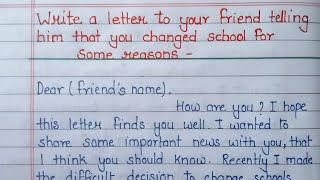 Write a letter to your friend telling
him that you changed school for
Some reasons -
Dear (friend's name).
How are you? I hope
this letter finds you well. I wanted to
share some important news with you, that
I think you should know. Recently I made
the difficult decision to change schools